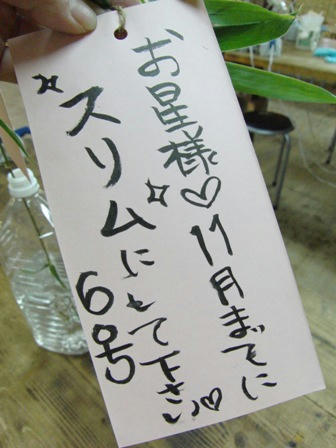 お星様♡11月までに
☆スリム☆にして下さい♡
6号